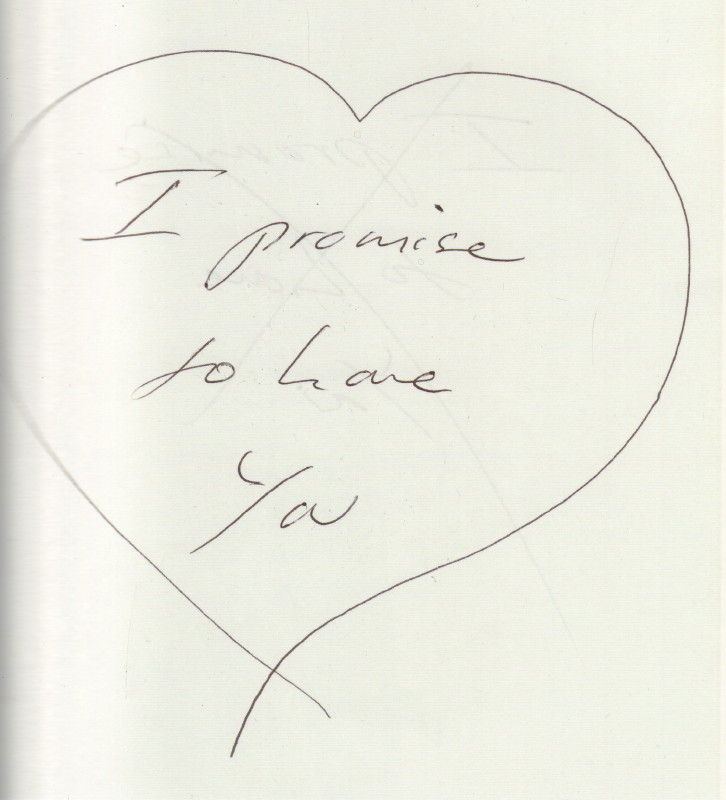 I promise
to Love
You